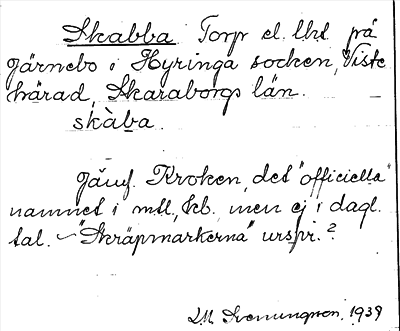 Skabba Torp el. lht. på
Järnebo i Hyringa socken, Viste
härad, Skaraborgs län.
skàba.
Jämf. Kroken, det "officiella"
namnet i mtl, kb. men ej i dagl.
tal. – "Skräpmarkerna" urspr.?
1939